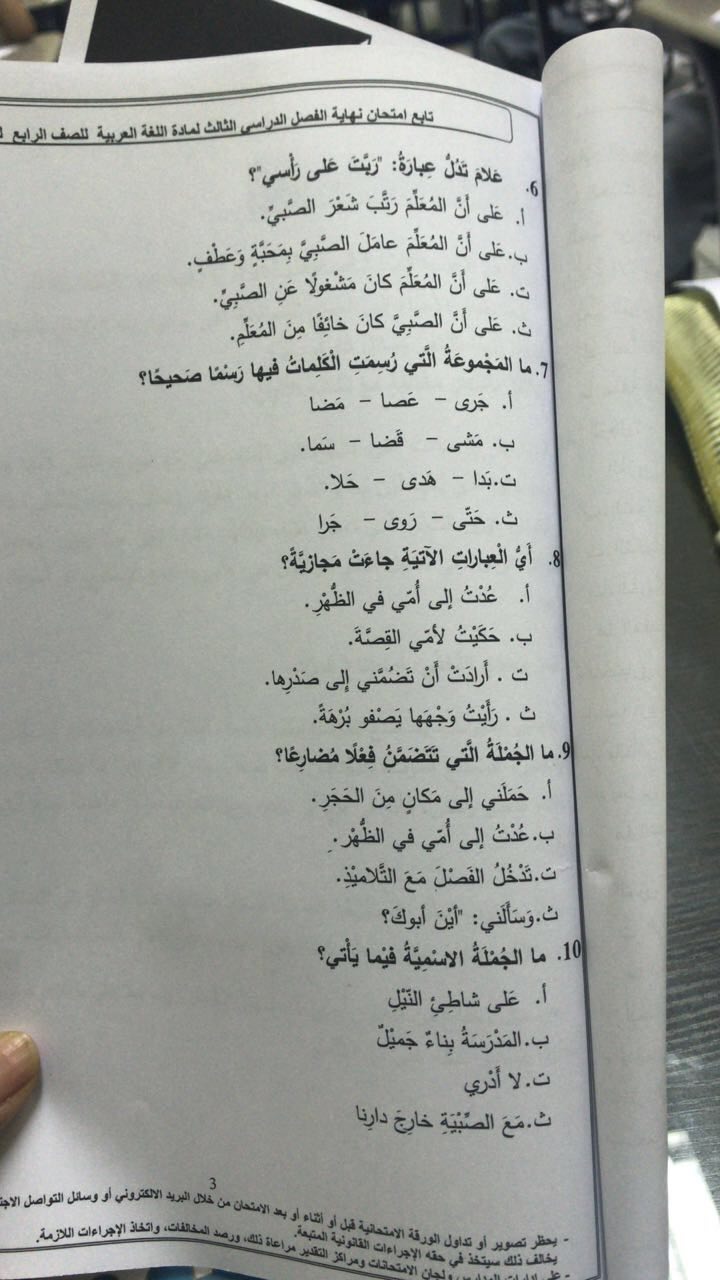 تابع امتحان نهاية الفصل الدراسي الثالث لمادة اللغة العربية للصف الرابع
6. عَلامَ تَدُلُّ عِبارَةُ: "رَبَّتَ عَلى رَأْسي"؟
أ. عَلى أَنَّ المُعَلِّمَ رَتَّبَ شَعْرَ الصَّبيِّ.
ب. عَلى أَنَّ المُعَلِّمَ عامَلَ الصَّبِيَّ بِمَحَبَّةٍ وَعَطْفٍ.
ت. عَلى أَنَّ المُعَلِّمَ كانَ مَشْغولًا عَنِ الصَّبِيِّ.
ث. عَلى أَنَّ الصَّبِيَّ كانَ خائِفًا مِنَ المُعَلِّمِ.
7. ما المَجْموعَةُ الَّتي رُسِمَتِ الْكَلِماتُ فيها رَسْمًا صَحيحًا؟
أ. جَرى – عَصا – مَضا
ب. مَشى – قَضا – سَما.
ت. بَدا – هَدى – حَلا.
ث. حَتّى – رَوى – جَرا
8. أَيُّ الْعِباراتِ الآتيَةِ جاءَتْ مَجازيَّةً؟
أ. عُدْتُ إلى أُمّي في الظُّهْرِ.
ب. حَكَيْتُ لأمّي القِصَّةَ.
ت. أَرادَتْ أَنْ تَضُمَّني إِلى صَدْرِها.
ث. رَأَيْتُ وَجْهَها يَصْفو بُرْهَةً.
9. ما الجُمْلَةُ الَّتي تَتَضَمَّنُ فِعْلًا مُضارِعًا؟
أ. حَمَلَني إلى مَكانٍ مِنَ الحَجَرِ.
ب. عُدْتُ إلى أُمّي في الظُّهْرِ.
ت. تَدْخُلُ الفَصْلَ مَعَ التَّلاميْذِ.
ث. وَسَأَلَني: "أيْنَ أبوكَ؟
10. ما الجُمْلَةُ الاسْمِيَّةُ فيْما يَأْتي؟
أ. عَلى شاطِئِ النّيْلِ
ب. المَدْرَسَةُ بِناءٌ جَميْلٌ
ت. لا أَدْري
ث. مَعَ الصِّبْيَةِ خارِجَ دارِنا
3
- يحظر تصوير أو تداول الورقة الامتحانية قبل أو أثناء أو بعد الامتحان من خلال البريد الالكتروني أو وسائل التواصل
يخالف ذلك سيتخذ في حقه الإجراءات القانونية المتبعة.
- على إدارات المدارس ولجان الامتحانات ومراكز التقدير مراعاة ذلك، ورصد المخالفات، واتخاذ الإجراءات اللازمة.